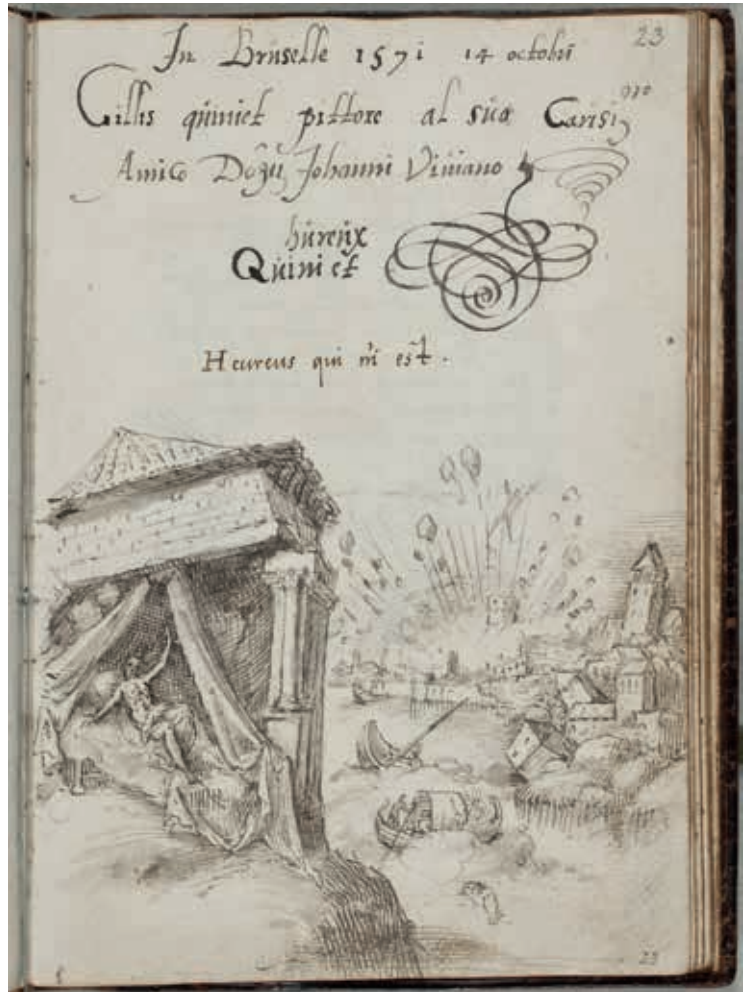 23
In Bruselle 1571 14 octobri
Gillis quiniet pittore al suo Carisi^mo
Amico Dom̃ Johanni Viviano
húreúx
Quini est
Heureus qui ni est.
23